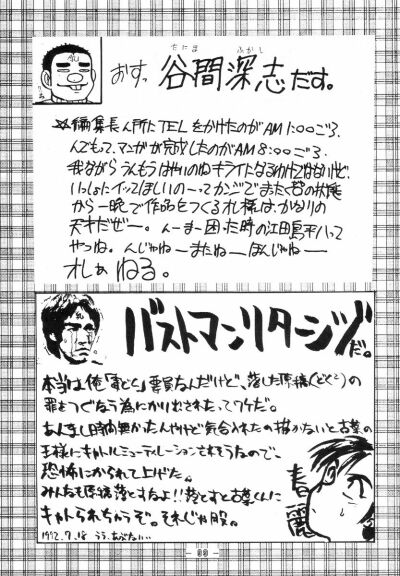 たにま ふかし
おすっ 谷間深志だす。
編集長ん所にTELをかけたのがAM1:00ごろ、
んでもって、マンガが完成したのがAM8:00ごろ、
我ながらうんもうはやいのねキライになるわけではないけど、
いっしょにイッてほしいの~ってカンジでまたく白の状態
から一晩で作品をつくるオレ様は、かなりの
天才だぜー。んーまー困った時の江田島平八って
やつね。んじゃねーまたねーほんじゃねー
オレぁ ねる。
バストマンリターンズだ。
本当は俺「まどら」要員なんだけど、落した原稿(どくろ)の
罪をつぐなう為にかりだされたってワケだ。
あんまし時間無かったんだけど気合入れたの描かないと古葉の
王様にキャトルミューティレーションされそうなので、
恐怖にかられて上げた。
みんなも原稿落とすなよ!!落とすと古葉くんに
キャトられちゃうぞ。それじゃ股。
1992.7.18 うう、あぶない…
春麗
- 99 -